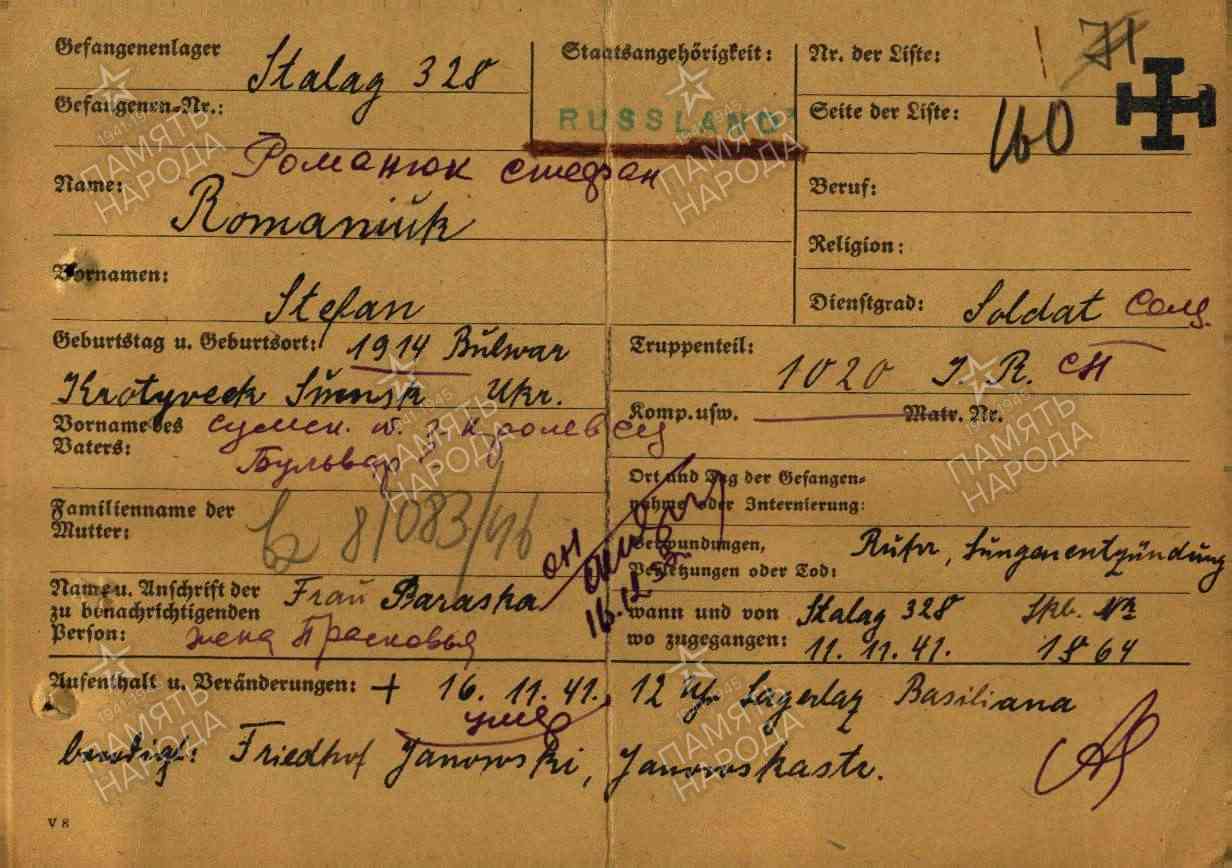 Gefangenenlager Stalag 328
Staatsangehörigkeit: RUSSLAND
Nr. der Liste: 71
Gefangenen-Nr.:
Seite der Liste: 160
Романюк Стефан
Name: Romaniuk
Beruf:
Religion:
Vornamen: Stefan
Dienstgrad: Soldat Солд.
Geburtstag u. Geburtsort: 1914 Bulwar
Krotyveck Sumsk Ukr.
Truppenteil: 1020 I. R. СП
Komp. usw. Matr. Nr.
Vorname des Vaters: Сумск. о. Королевец
Бульвар
Ort und Tag der Gefangen-
nahme oder Internierung:
Familienname der
Mutter:
81083/46
Verwundungen, Ruhr, Lungenentzündung
Verletzungen oder Tod:
Name u. Anschrift der Frau Baraska
zu benachrichtigenden
Person: жена Прасковья
16.12
wann und von Stalag 328
wo zugegangen: 11. 11. 41. 1864
Aufenthalt u. Veränderungen: + 16. 11. 41. 12 Lagerlaz Basiliana
умер
beerdigt: Friedhof Janowski, Janowskastr.
V 8
ПАМЯТЬ НАРОДА
1941-1945